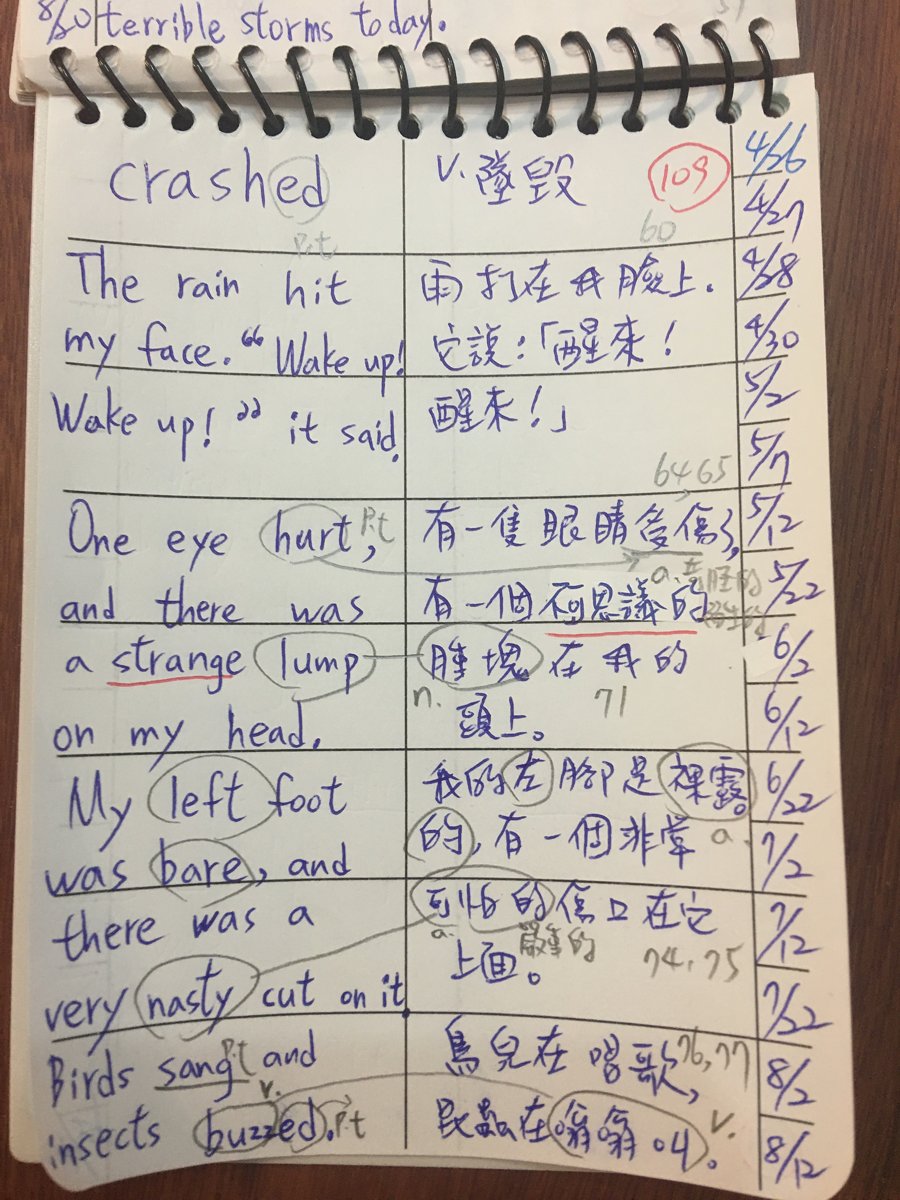 8/20 terrible storms today.
crashed
v. 墜毀
109
P.t
60
The rain hit
雨打在我臉上.
my face. “Wake up!
它說:「醒來!
Wake up!” it said.
醒來!」
64,65
One eye hurt, P.t
有一隻眼睛受傷了,
a.
and there was
有一個不可思議的
a strange lump
腫塊在我的
n.
71
on my head.
頭上。
My left foot
我的左腳是裸露
was bare, and
的, 有一個非常
a.
there was a
可怕的傷口在它
a.
嚴重的
very nasty cut on it
上面。
74,75
Birds sang P.t and
鳥兒在唱歌,
76,77
v.
insects buzzed. P.t
昆蟲在嗡嗡叫。
v.
4/26
4/27
4/28
4/30
5/2
5/7
5/12
5/22
6/2
6/12
6/22
7/2
7/12
7/22
8/2
8/12